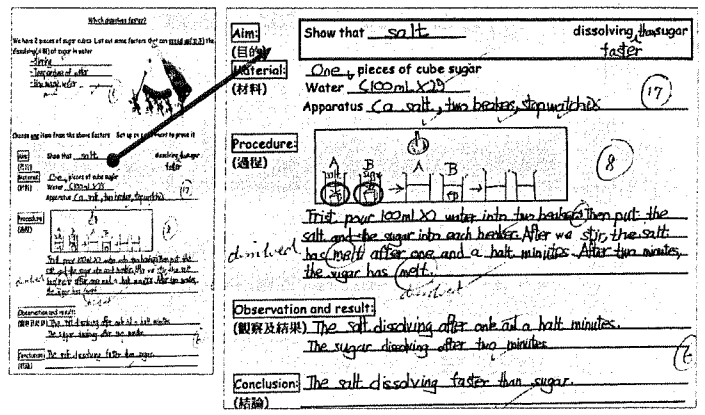 Which dissolves faster?
We have 2 pieces of sugar cubes. List out some factors that can
dissolving of sugar in water
-stirring
-Temperature of water
Choose one item from the above factors. Set up to prove it
Aim:
(目的)
Show that salt dissolving than sugar
faster
Material:
(材料)
One pieces of cube sugar
Water (100mL X2)
Apparatus (a salt, two beaker, stopwatch
17
Procedure:
(過程)
8
A B A B
salt sugar
Frist pour 100mL X2 water into two beakers. Then put the
salt and the sugar into each beaker. After we stir, the salt
dissolved
has melt after one and a halt minutes. After two minutes,
the sugar has melt.
dissolved
Observation and result:
(觀察及結果) The salt dissolving after one and a halt minutes.
The sugar dissolving after two minutes
6
Conclusion: The salt dissolving faster than sugar.
(結論)
Aim
(目的)
Show that salt dissolving than sugar
faster
Material
(材料)
One pieces of cube sugar
Water (100mL X2)
Apparatus (a salt, two beaker, stopwatch
17
Procedure
(過程)
8
Frist pour 100mL X2 water into two beakers. Then put the
salt and the sugar into each beaker. After we stir, the salt
dissolved
has melt after one and a halt minutes. After two minutes,
the sugar has melt.
dissolved
Observation and result:
(觀察及結果) The salt dissolving after one and a halt minutes.
The sugar dissolving after two minutes
Conclusion: The salt dissolving faster than sugar.
(結論)